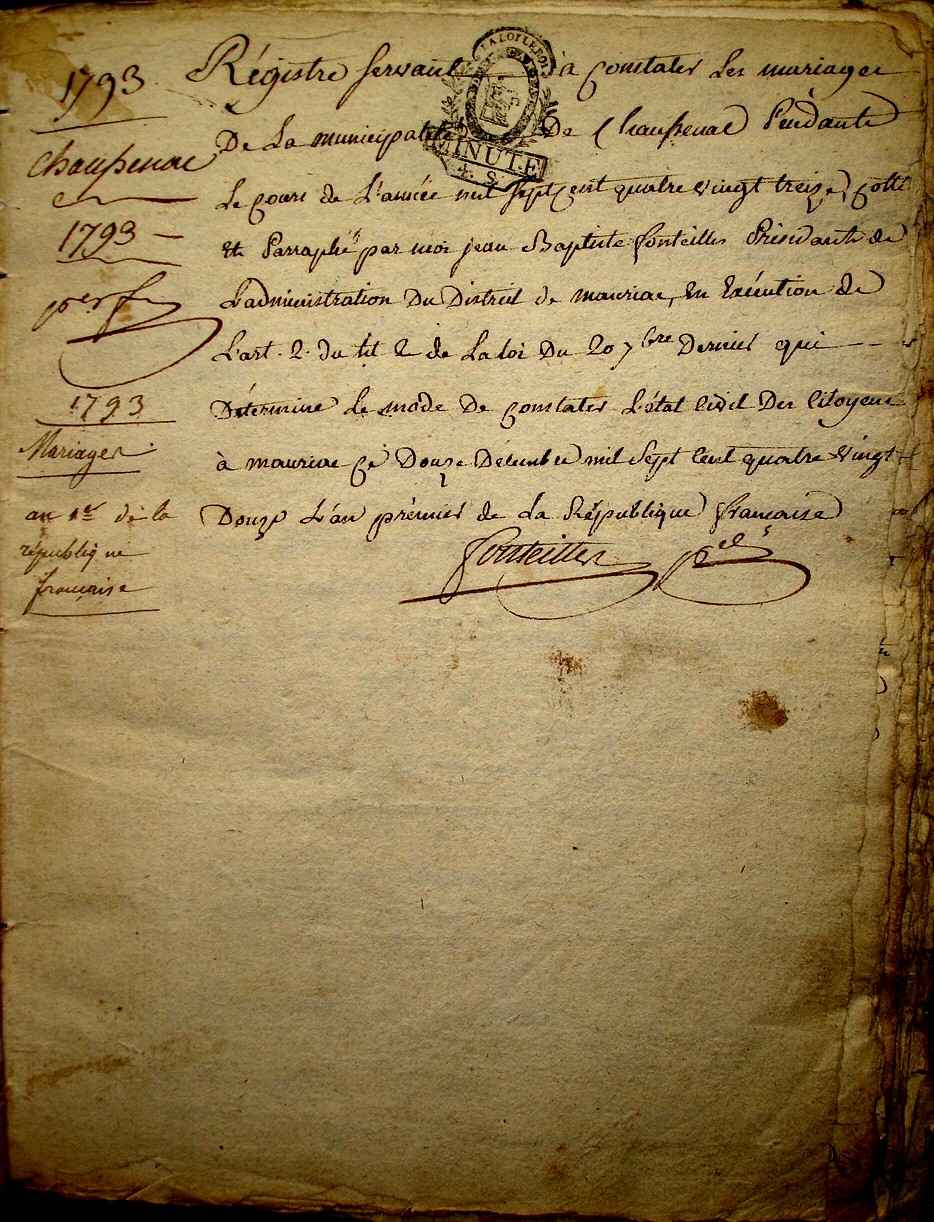 1793
Chaussenac
1793
per f
1793
Mariages
an 1er de la
république
française
LA LOI LE ROI
MINUTE
4. S.
Régistre servant à Constater les mariages
De La municipalité De Chaussenac Pendante
Le Cours de L'année mil Sept Cent quatre vingt treize, Cotté
et Parraphé par moi jean Baptiste fonteilles Présidante de
L'administration Du District de mauriac, En Exécution de
L'art. 2. du tit 2 de La loi Du 20 7bre Dernier qui
Détermine Le mode De Constater L'état Civil Des Citoyens
à mauriac Ce Douze Décembre mil Sept Cent quatre Vingt
Douze L'an prémier de La République française
fonteilles